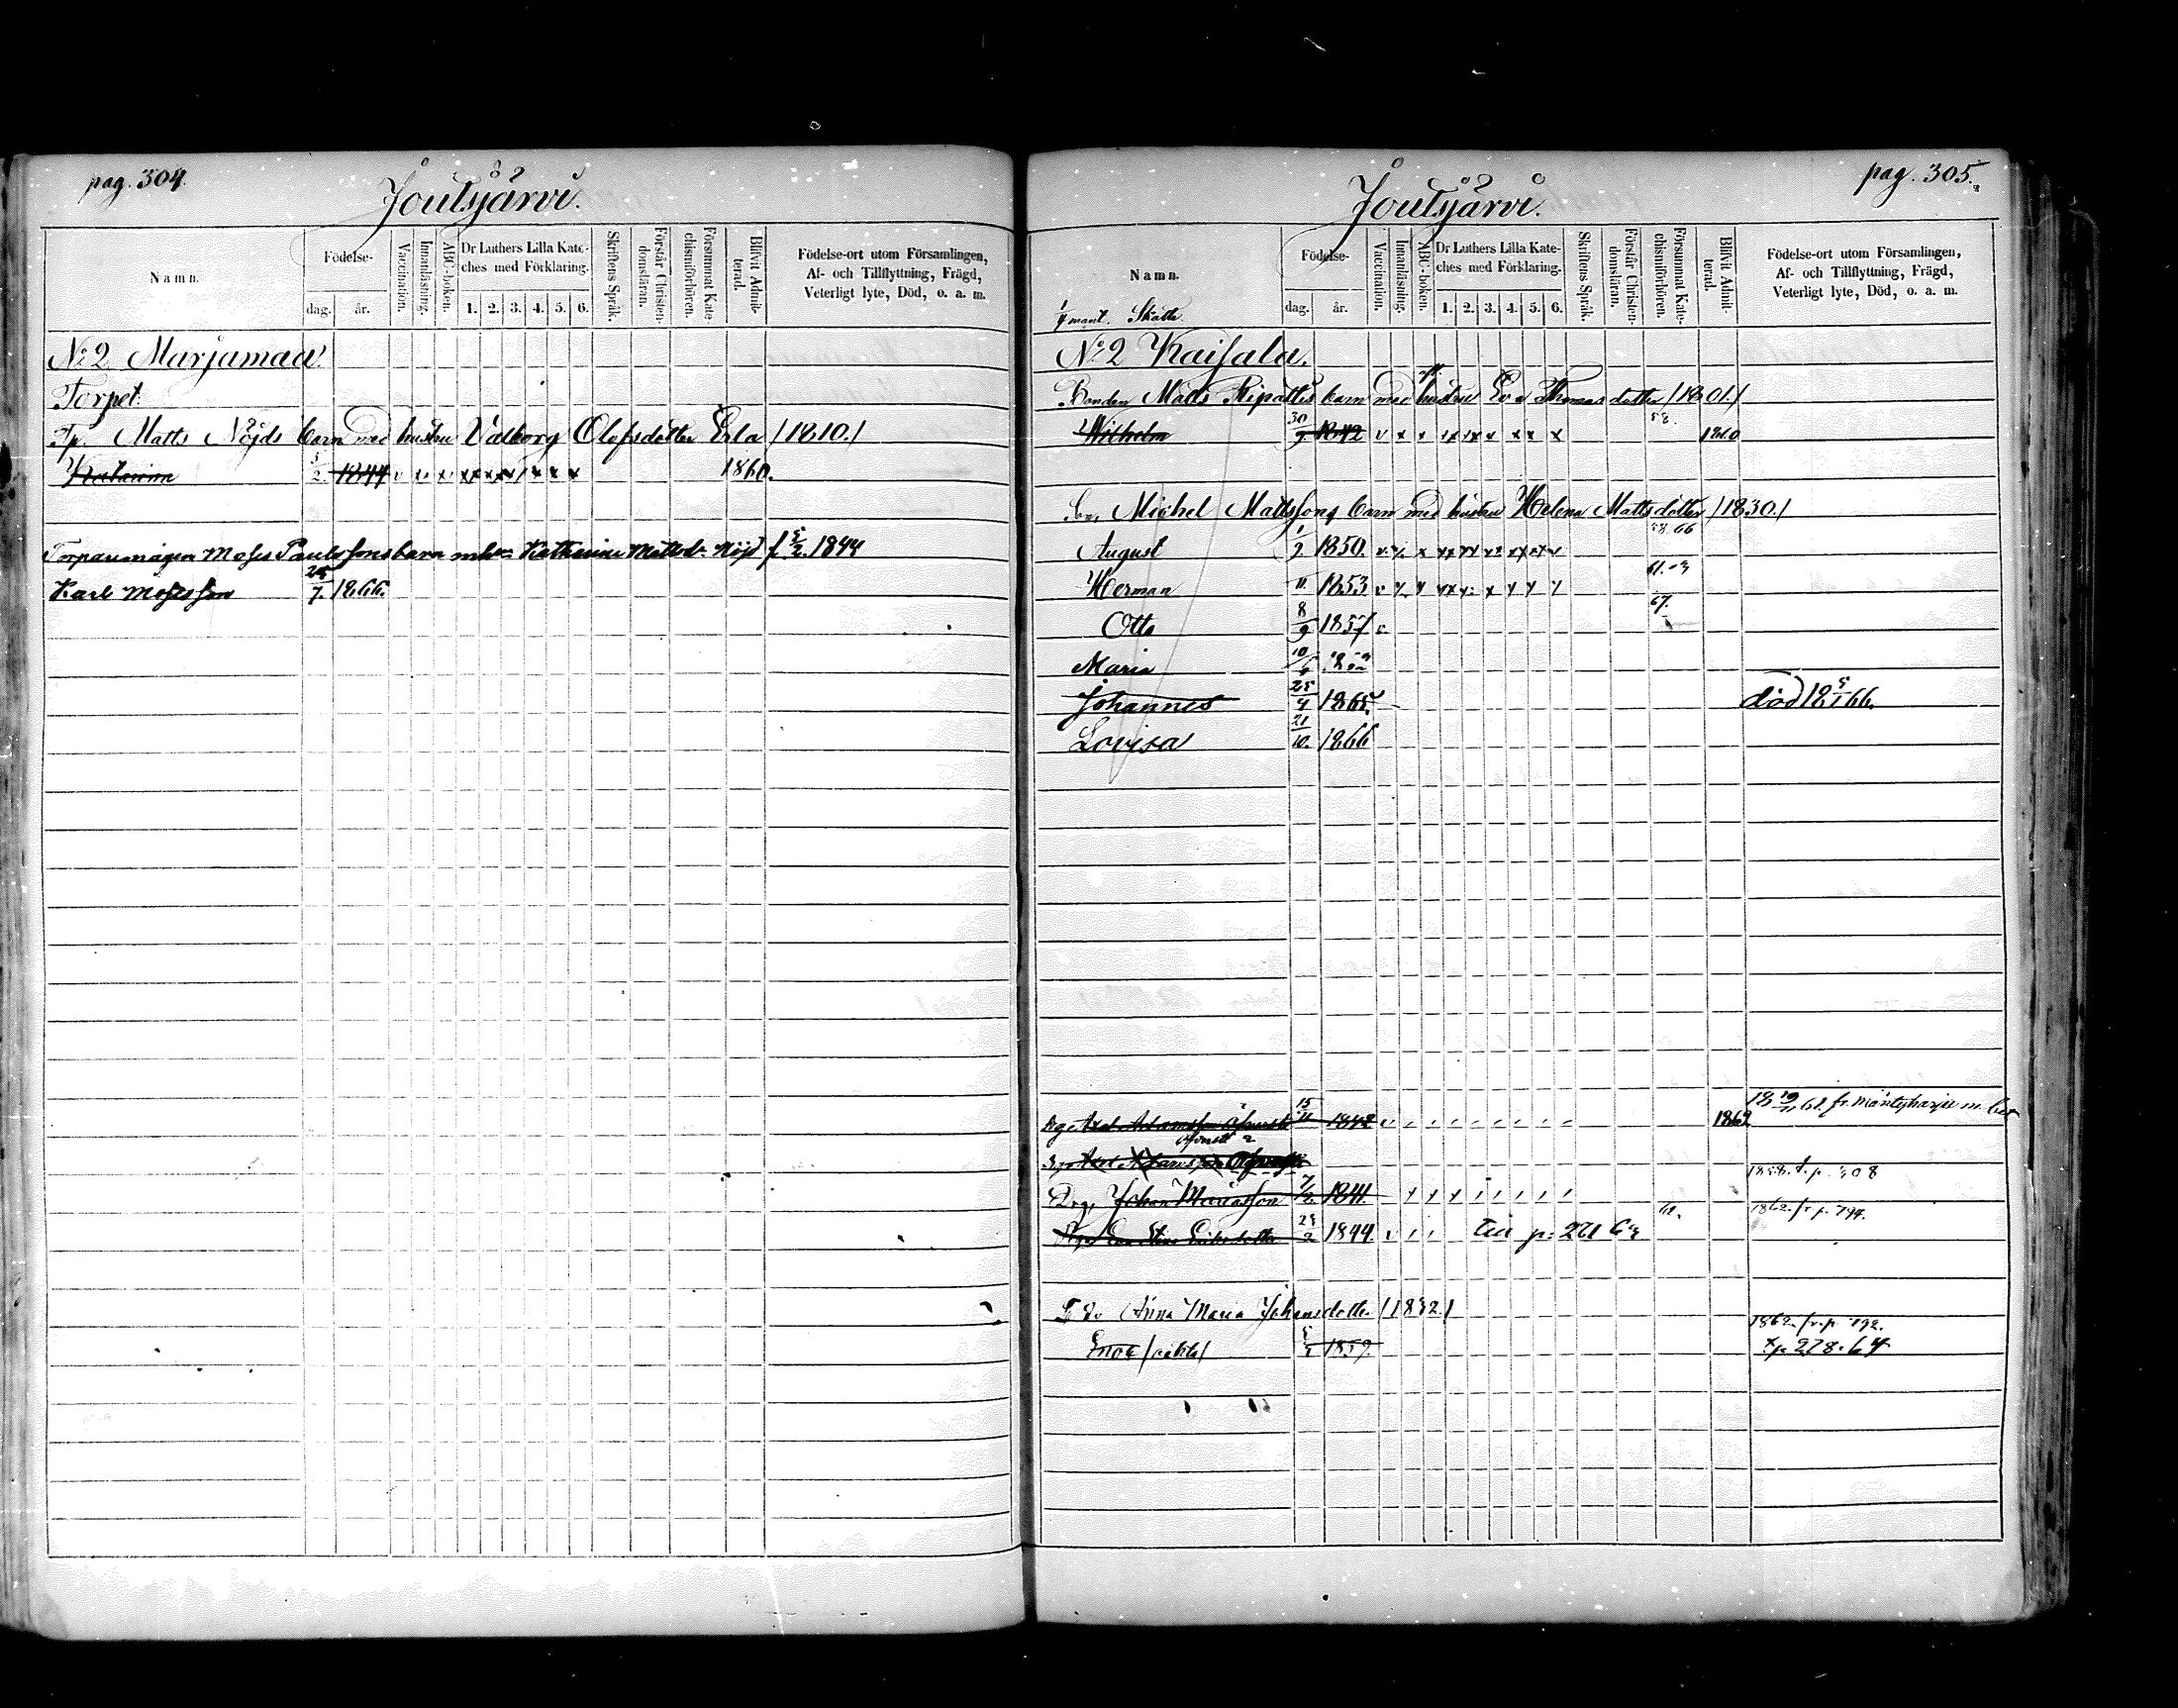 pag. 304.
Joutsjärvi.
Namn.
Födelse-
dag.
år.
Vaccination.
Innanläsning.
ABC-boken.
Dr Luthers Lilla Kate-
ches med Förklaring.
1. 2. 3. 4. 5. 6.
Skriftens Språk.
Förstår Christen-
domsläran.
Försummat Kate-
chismiförhören.
Blifvit Admit-
terad.
Födelse-ort utom Församlingen,
Af- och Tillflyttning, Frägd,
Veterligt lyte, Död, o. a. m.
No 2 Marjamaa.
Torpet.
Tp. Matts Nöjds barn med hustru Valborg Olofsdotter Erla /1810./
Katarina 5/2. 1844 v x x x x x x x x x 1860.
Moses Paulssons barn Katharina Mattsd. Nöjd f. 5/2. 1844
Karl Mosesson 25/7. 1866.
pag. 305.
Joutsjärvi.
Namn.
1/4 mant. Skatte.
Födelse-
dag.
år.
Vaccination.
Innanläsning.
ABC-boken.
Dr Luthers Lilla Kate-
ches med Förklaring.
1. 2. 3. 4. 5. 6.
Skriftens Språk.
Förstår Christen-
domsläran.
Försummat Kate-
chismiförhören.
Blifvit Admit-
terad.
Födelse-ort utom Församlingen,
Af- och Tillflyttning, Frägd,
Veterligt lyte, Död, o. a. m.
No 2 Kaisala.
Bonden Matts Ripattis barn med hustru Eva Thomasdotter /1801./
Wilhelm 30/9 1842 v x x x x x x x x 1860
Michel Mattssons barn med hustru Helena Mattsdotter /1830./
August 1/2 1850. 58. 66
Herman 11 1853
Otto 8/9 1857 v. 67.
Maria 10/6
Johannes 25/4 1865. död 18 5/1 66.
Lovisa 21/10. 1866
Axel Adamsson 15/11 1842 1862 18 19/11 61. fr. Mäntyharju m. bet
1858. f. p. 308
Drg. Johan Mariasson 7/12. 1841.
1862. fr. p. 794.
Eva Stina Eriksdotter 23/2 1844. v till p. 271 63
Anna Maria Johansdotter /1832./
1862. fr. p. 792.
Enok /oäkta/ 1859. t. p. 278. 64